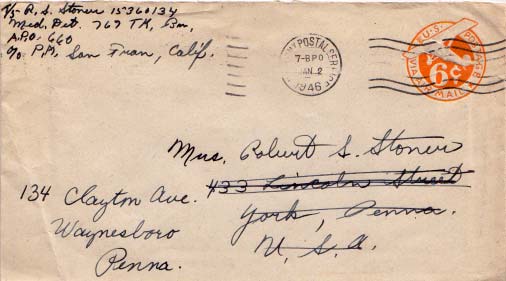 T/5 R. S. Stoner 15360134
Med. Det. 767 TK. Bn.
A.P.O. 660
c/o P.M. San Fran, Calif.
POSTAL SERVICE
7-8PM
JAN 2
1946
U.S. POSTAGE
6¢
VIA AIR MAIL
Mrs. Robert S. Stoner
433 Lincoln Street
York, Penna.
U. S. A.
134 Clayton Ave.
Waynesboro
Penna.